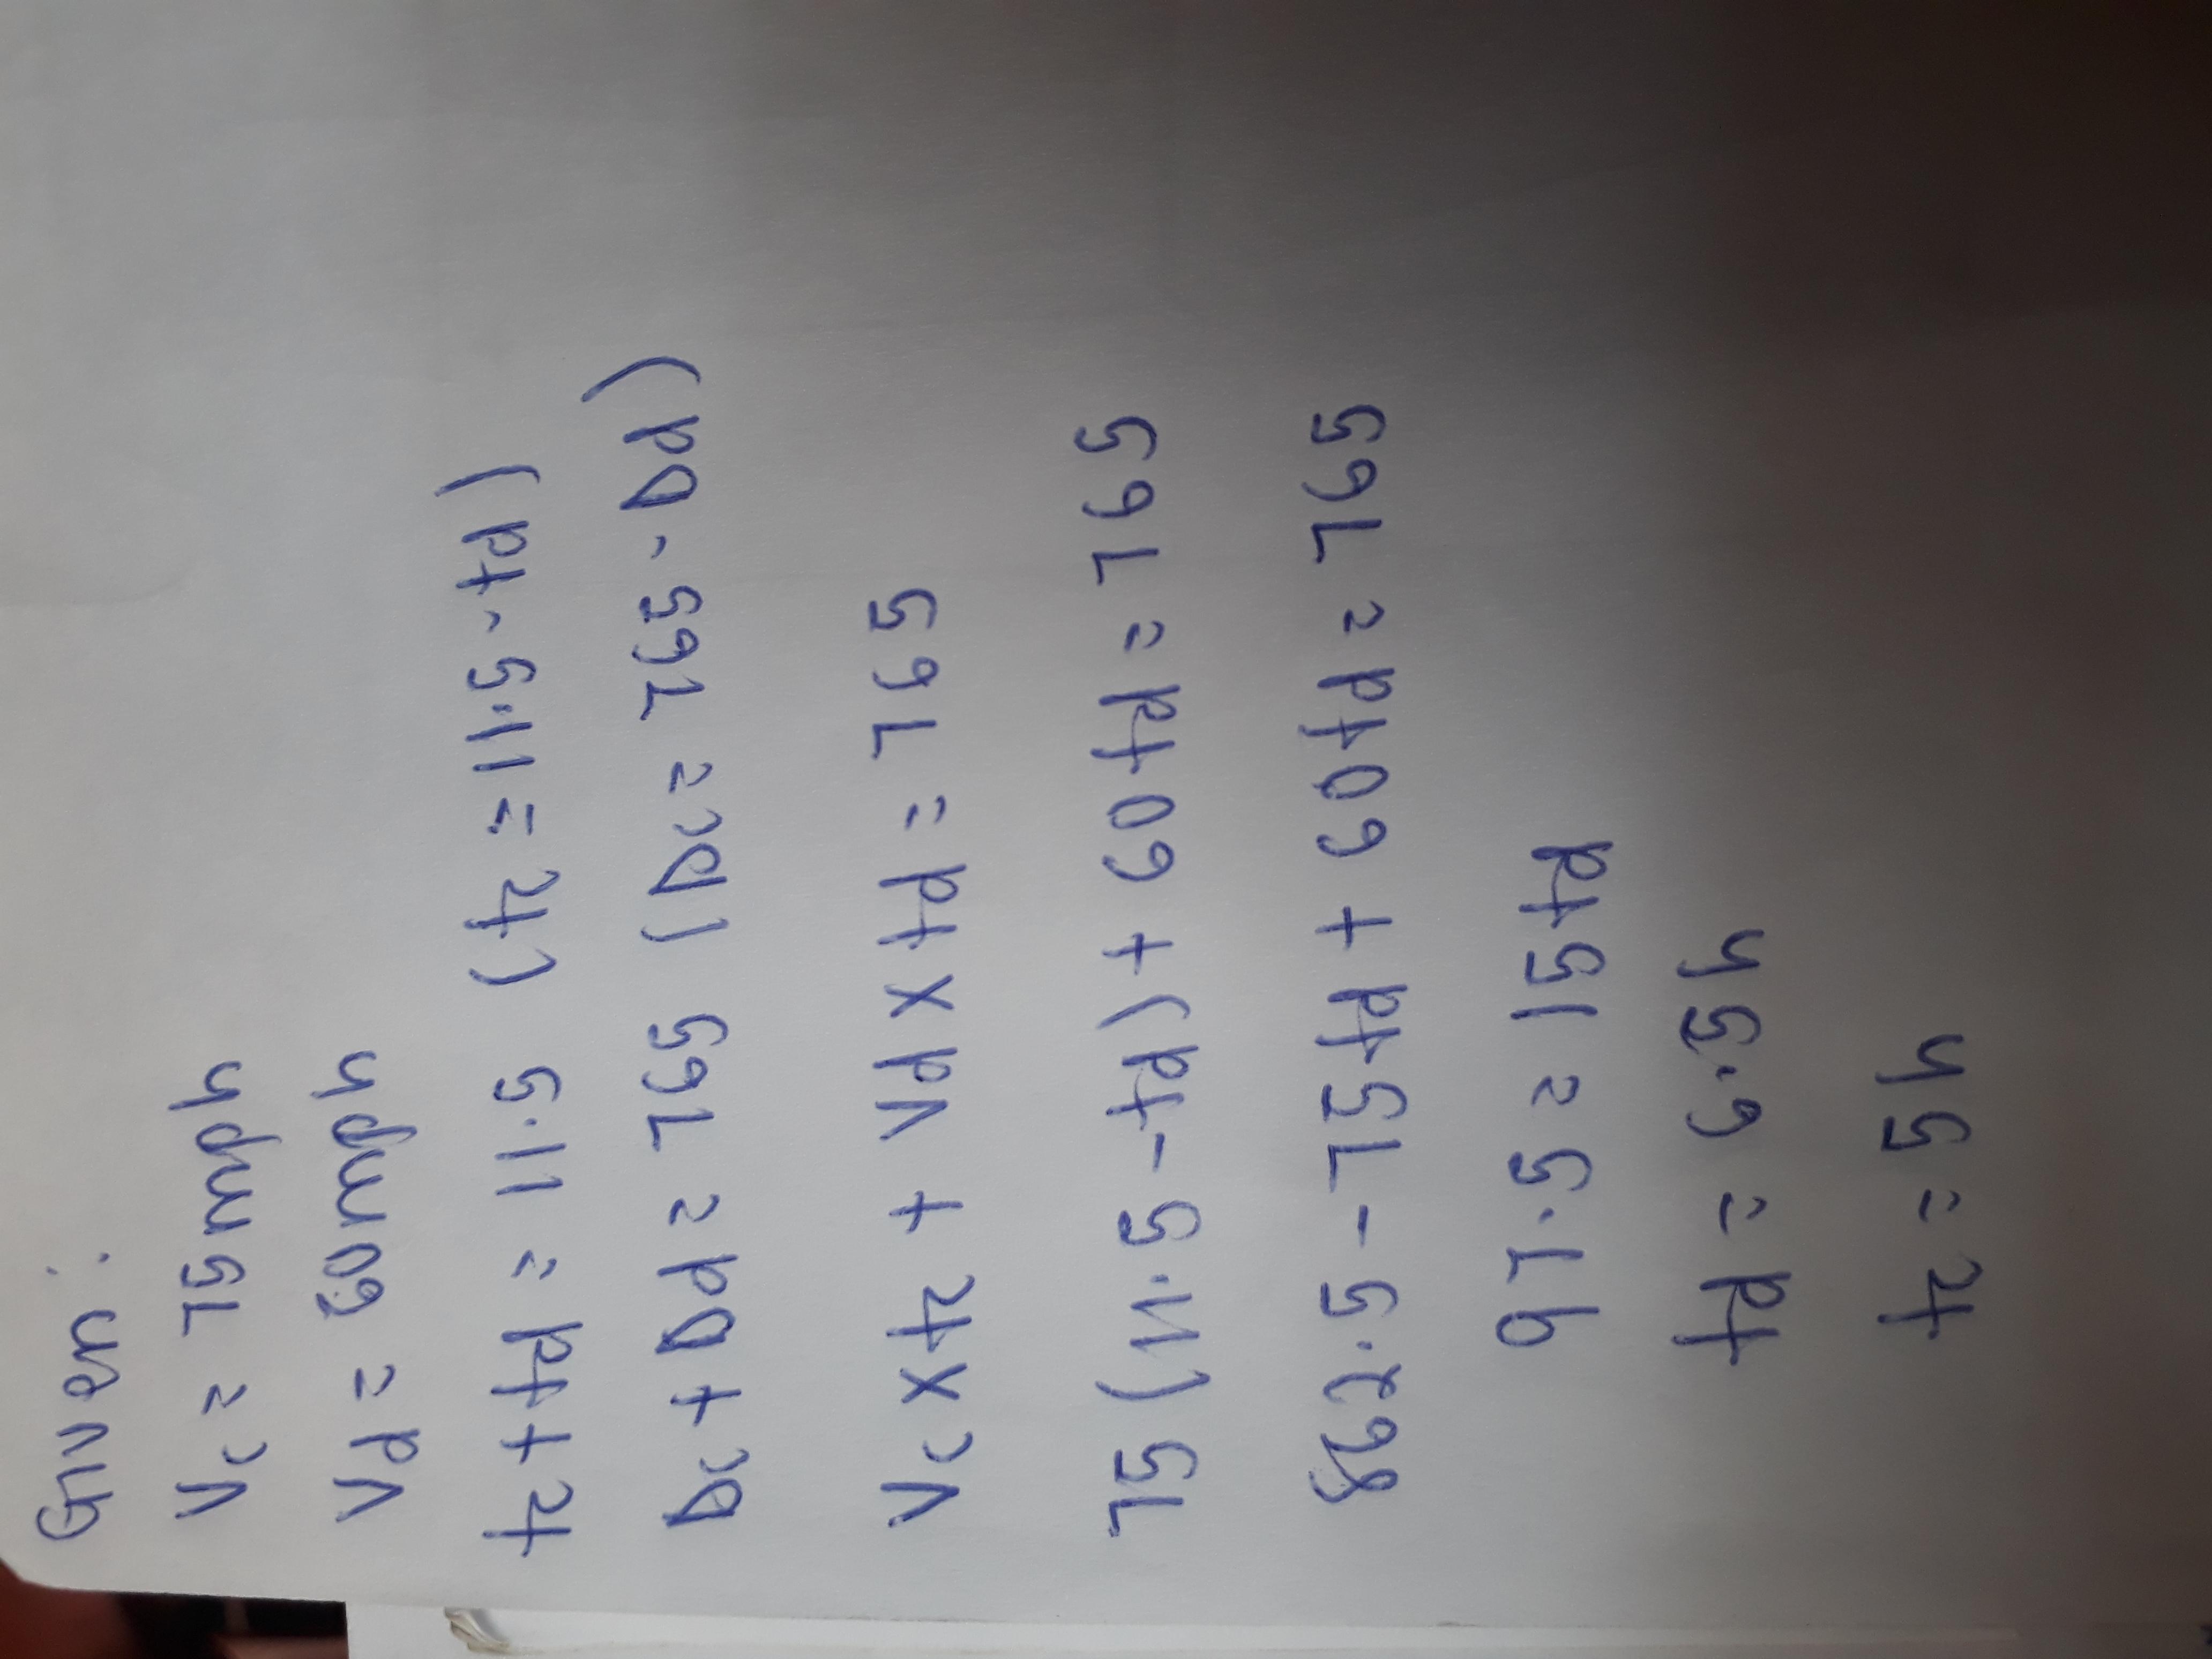 Given:
Vc = 75mph
Vd = 60mph
tc + td = 11.5 (tc = 11.5 - td)
Dc + Dd = 765 (Dc = 765 - Dd)
Vc x tc + Vd x td = 765
75 (11.5 - td) + 60td = 765
862.5 - 75td + 60td = 765
97.5 = 15td
td = 6.5h
tc = 5h